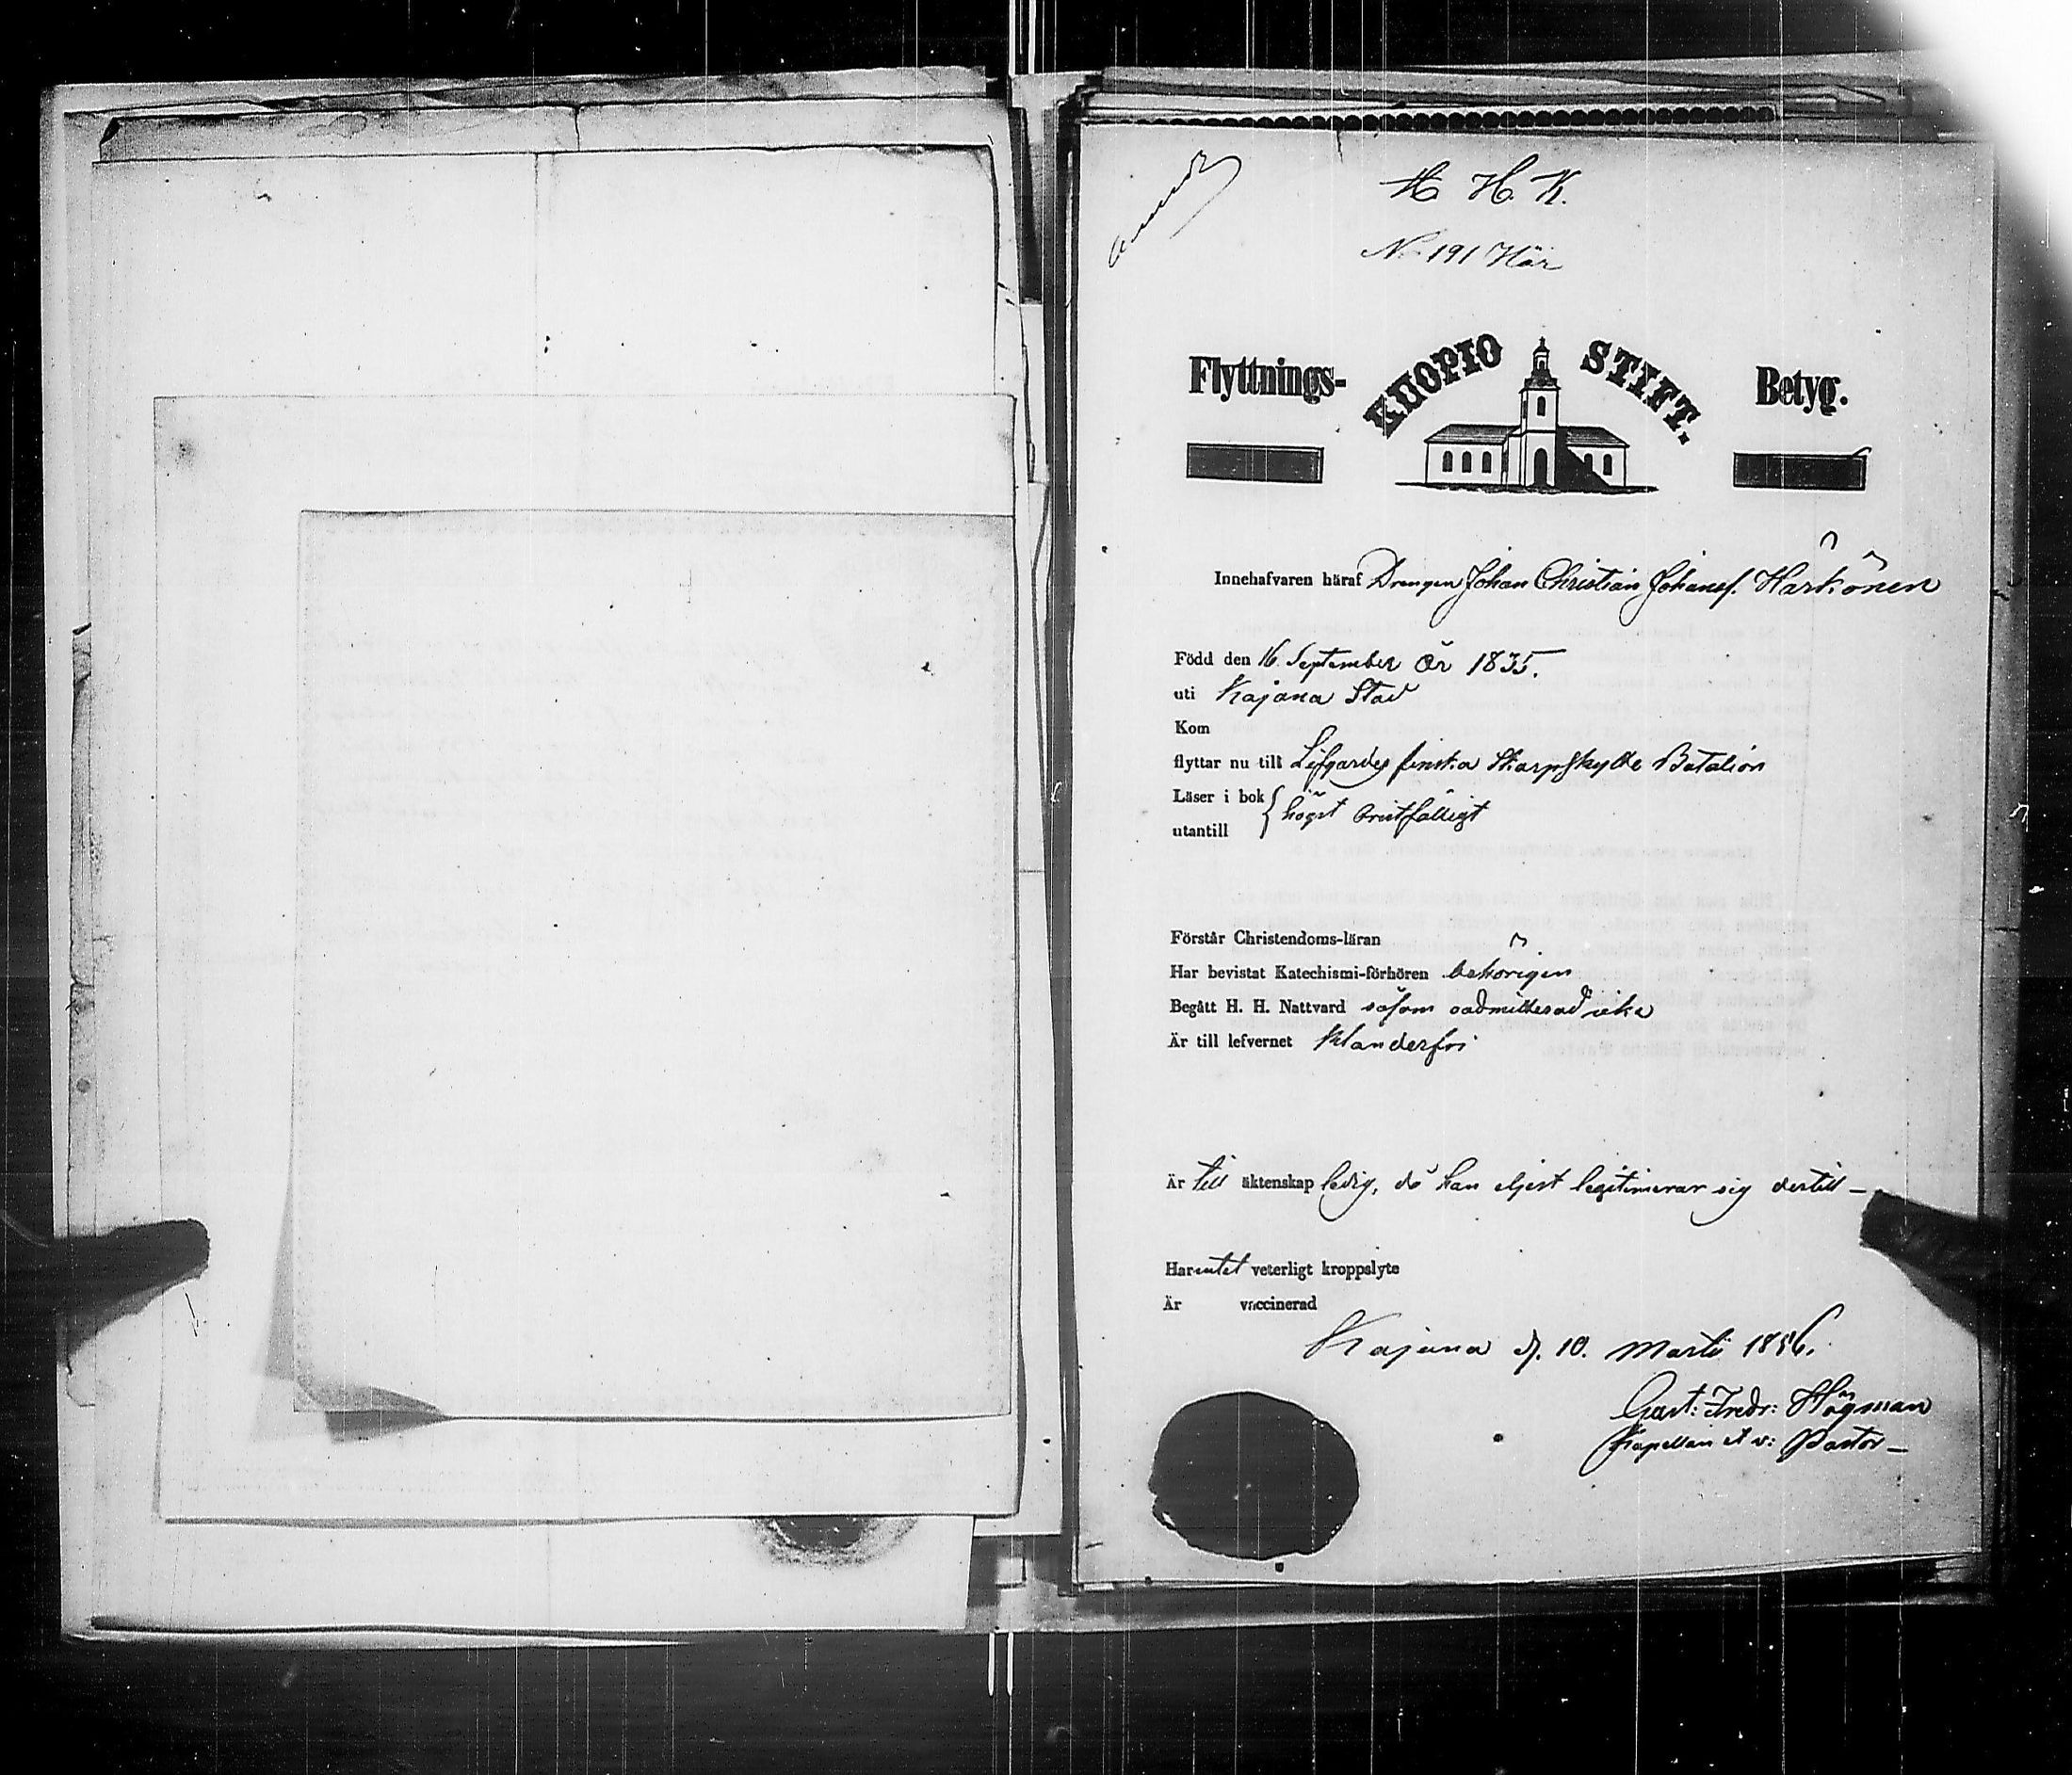 H. H. K.
N 191 Här
Flyttnings- KUOPIO STIFT. Betyg.
Innehafvaren häraf Drengen Johan Christian Johansf. Härkönen
Född den 16. September år 1835.
uti Kajana Stad
Kom
flyttar nu till Lifgardes finska Skarpskytte Batalion
Läser i bok
utantill } högst bristfälligt
Förstår Christendoms-läran
Har bevistat Katechismi-förhören behörigen
Begått H. H. Nattvard såsom oadmitterad icke
Är till lefvernet Klanderfri
Är till äktenskap ledig, då han eljest legitimerar sig dertill —
Har intet veterligt kroppslyte
Är vaccinerad
Kajana d. 10. Martii 1856.
Gust: Fredr: Högman
Kapellan et v: Pastor —